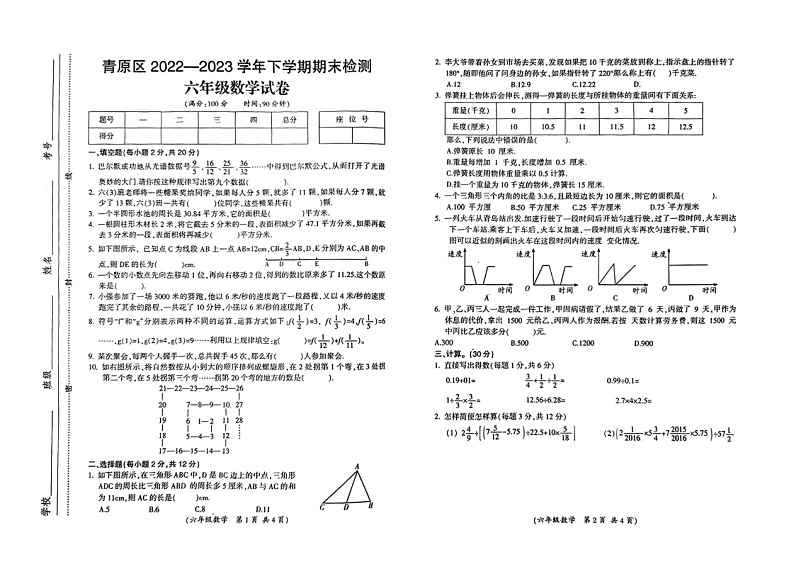 青原区 2022—2023 学年下学期期末检测
六年级数学试卷
(满分:100 分 时间:90 分钟)
题号 一 二 三 四 总分
得分
座 位 号
考号
姓名
班级
学校
线
封
密
一、填空题(每小题 2 分,共 20 分)
1. 巴尔默成功地从光谱数据号 9/5, 16/12, 25/21, 36/32 ……中得到巴尔默公式,从而打开了光谱
奥妙的大门.请你按这种规律写出第九个数据( ).
2. 六(3)班老师将一些糖果奖给同学, 如果每人分 5 颗, 就多了 11 颗, 如果每人分 7 颗,就
少了 13 颗,六(3)班一共有( )位同学,这些糖果共有( )颗.
3. 一个半圆形水池的周长是 30.84 平方米,它的面积是( )平方米.
4. 一根圆柱形木材长 2 米,将它截去 5 分米的一段,表面积减少了 47.1 平方分米,如果再截
去 3 分米的一段,表面积将再减少( )平方分米.
5. 如下图所示, 已知点 C 为线段 AB 上一点 AB=12cm,CB=2/3AB,D、E 分别为 AC、AB 的中
点,则 DE 的长为( )cm.
A D C E B
6. 一个数的小数点先向左移动 1 位,再向右移动 2 位,得到的数比原来多了 11.25.这个数原
来是( ).
7. 小强参加了一场 3000 米的赛跑,他以 6 米/秒的速度跑了一段路程,又以 4 米/秒的速度
跑完了其余的路程,一共花了 10 分钟,小强以 6 米/秒的速度跑了( )米.
8. 符号“f”和“g”分别表示两种不同的运算, 运算方式如下 :f(1/2)=3, f(1/4)=4,f(1/5)=6
……,g(1)=1,g(2)=4,g(3)=9……利用以上规律填空:g( )=f(1/12)+f(1/11)。
9. 某次聚会,每两个人握手一次,总共握手 45 次,那么有( )人参加聚会.
10. 如右图所示,将自然数按从小到大的顺序排列成螺旋形,在 2 处拐第 1 个弯,在 3 处拐
第二个弯,在 5 处拐第三个弯……拐第 20 个弯的地方的数是( ).
21—22—23—24—25—26
20 7—8—9—10 27
19 6 1—2 11 28
18 5—4—3 12
17—16—15—14—13
二、选择题(每小题 2 分,共 12 分)
1. 如下图所示,在三角形 ABC 中,D 是 BC 边上的中点,三角形
ADC 的周长比三角形 ABD 的周长多 5 厘米,AB 与 AC 的和
为 11cm,则 AC 的长是( )cm.
A.5 B.6 C.8 D.11
A
C D B
(六年级数学 第 1 页 共 4 页)
2. 李大爷带着孙女到市场去买菜,发现如果把 10 千克的菜放到称上,指示盘上的指针转了
180°,随即他问了问身边的孙女,如果指针转了 220°那么称上有( )千克菜.
A.12 B.12.9 C.12.22 D.
3. 弹簧挂上物体后会伸长,测得一弹簧的长度与所挂物体的重量间有下面关系:
重量(千克) 0 1 2 3 4 5
长度(厘米) 10 10.5 11 11.5 12 12.5
那么,下列说法中错误的是( ).
A.弹簧原长 10 厘米.
B.重量每增加 1 千克,长度增加 0.5 厘米.
C.弹簧长度用物体重量乘以 0.5 计算.
D.挂一个重量为 10 千克的物体,弹簧长 15 厘米.
4. 一个三角形三个内角的比是 3:3:6,且最短边长为 10 厘米,则它的面积是( ).
A.100 平方厘 B.50 平方厘米 C.25 平方厘米 D.75 平方厘米
5. 一列火车从青岛站出发,加速行驶了一段时间后开始匀速行驶,过了一段时间,火车到达
下一个车站.乘客上下车后,火车又加速,一段时间后火车再次匀速行驶,下面( )
图可以近似的刻画出火车在这段时间内的速度 变化情况.
速度 速度 速度 速度
时间 时间 时间 时间
A B C D
6. 甲、乙、丙三人一起完成一件工作,甲因病请假了,结果乙做了 6 天,丙做了 9 天,甲作为
休息的代价,拿出 1500 元给乙、丙两人作为报酬.若按 天数计算劳务费,则这 1500 元
中丙比乙应该多分( )元.
A.300 B.500 C.1200 D.900
三、计算。(30 分)
1. 直接写出得数(每题 1 分,共 6 分)
0.19+01= 3/4+1/2÷1/2= 0.99÷0.1=
1÷2/3×3/2= 12.56÷6.28= 2.7×4×2.5=
2. 怎样简便怎样算(每题 3 分,共 12 分)
(1) 2 4/9÷[(7 5/12-5.75)÷22.5+10×5/18] (2)(2 1/2016×5 3/4+7 2015/2016×5.75)÷57 1/2
(六年级数学 第 2 页 共 4 页)